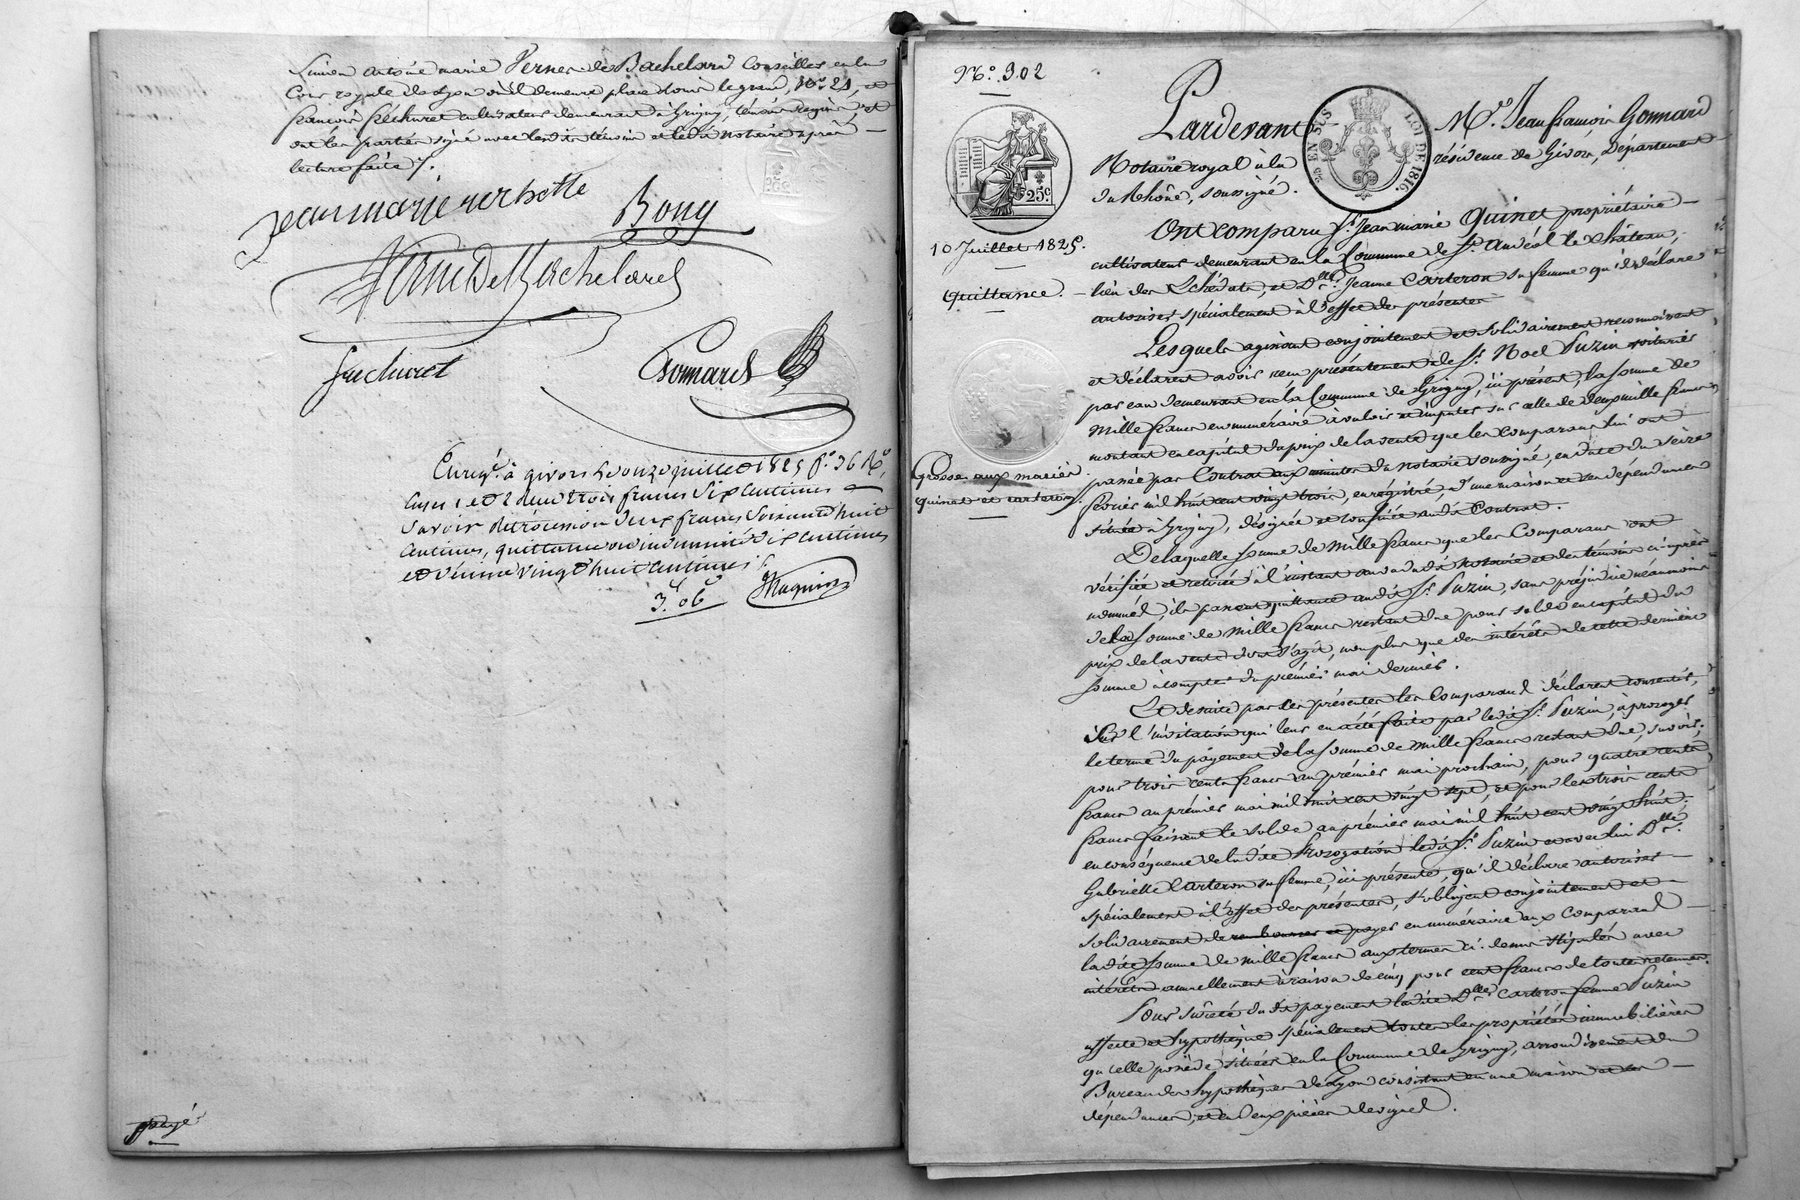 antoine marie Vernes de Bachelard Conseiller en la
Cour royale de Lyon où il demeure place Louis le grand, No. 21, et
françois fléchuret cultivateur demeurant à Grigny, témoins requis, et
ont les parties signé avec lesdits témoins et ledit notaire après
lecture faite /.
jean marie verbotte
Bony
Gonnard
Enreg. à givors le onze juillet 1825 fo. 36 Ro.
cases 1 et 2 reçu trois francs six centimes
savoir rétrocession deux francs soixante huit
centimes, quittance ou indemnité dix centimes
et dixième vingt huit centimes /.
3f. 06c
payé
No. 302
25c.
10 Juillet 1825.
Quittance.
Grosse aux mariés
quinet et carteron.
EN SUS
LOI DE 1816.
Pardevant Me. Jean françois Gonnard
Notaire royal à la résidence de Givors, Département
du Rhône, soussigné.
Ont comparu Sr. Jean marie Quinet propriétaire
cultivateur demeurant en la Commune de St. andéol le château,
lieu de et Dlle. Jeanne Carteron sa femme qu'il déclare
autoriser spécialement à l'effet des présentes
Lesquels agissant conjointement et solidairement reconnoissent
et déclarent avoir reçu présentement de Sr. Noel Puzin voiturier
par eau demeurant en la Commune de Grigny, ici présent, la somme de
Mille francs en numéraire à valoir et imputer sur celle de deux mille francs,
montant en capital du prix de la vente que les comparans lui ont
passée par Contrat aux minutes du notaire soussigné, en date du seize
février mil huit cent vingt trois, enregistré, d'une maison et ses dependances
située à Grigny, désignée et confinée audit Contrat.
De laquelle somme de Mille francs que les Comparans ont
vérifiée et retirée à l'instant au vu dudit notaire et des témoins ci-après
nommés, ils passent quittance audit Sr. Puzin, sans préjudice néanmoins
de la somme de Mille francs restant due pour solde en capital du
prix de la vente dont s'agit, non plus que des intérêts de cette dernière
somme à compter du prémier mai dernier.
Et de suite par les présentes les Comparans déclarent consentir,
sur l'invitation qui leur en a été faite par ledit Sr. Puzin, à proroger
le terme du payement de la somme de Mille francs restant due, savoir;
pour trois cents francs au prémier mai prochain, pour quatre cents
francs au prémier mai mil huit cent vingt sept, et pour les trois cents
francs faisant le solde au prémier mai mil huit cent vingt huit.
en conséquence de ladite Prorogation ledit Sr. Puzin et avec lui Dlle.
Gabrielle Carteron sa femme, ici présente, qu'il déclare autoriser
spécialement à l'effet des présentes, s'obligent conjointement et
solidairement de rembourser et payer en numéraire aux comparans
ladite somme de mille francs aux termes ci-dessus stipulés avec
intérêts annuellement à raison de cinq pour cent francs de toute retenue.
Pour sûreté dudit payement ladite Dlle. Carteron femme Puzin
affecte et hypothèque spécialement toutes les propriétés immobilières
qu'elle possède situées en la Commune de Grigny, arrondissement du
Bureau des hypothèques de Lyon consistant en une maison et ses
dépendances, et en deux pièces de vigne.